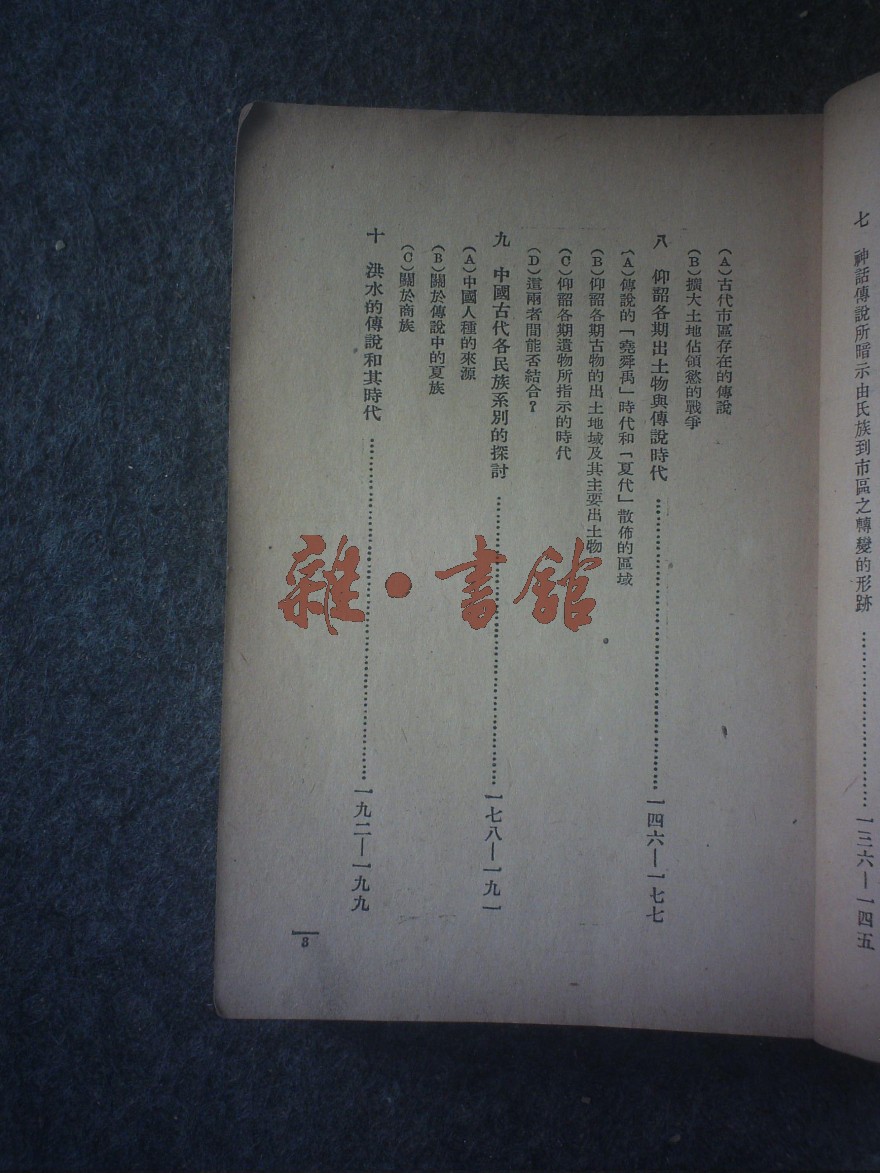 七　神話傳說所暗示由氏族到市區之轉變的形跡……………………一三六—一四五
(A)古代市區存在的傳說
(B)擴大土地佔領慾的戰爭
八　仰韶各期出土物與傳說時代……………………一四六—一七七
(A)傳說的「堯舜禹」時代和「夏代」散佈的區域
(B)仰韶各期古物的出土地域及其主要出土物
(C)仰韶各期遺物所指示的時代
(D)這兩者間能否結合?
九　中國古代各民族系別的探討……………………一七八—一九一
(A)中國人種的來源
(B)關於傳說中的夏族
(C)關於商族
十　洪水的傳說和其時代……………………一九二—一九九
8
雜·書館